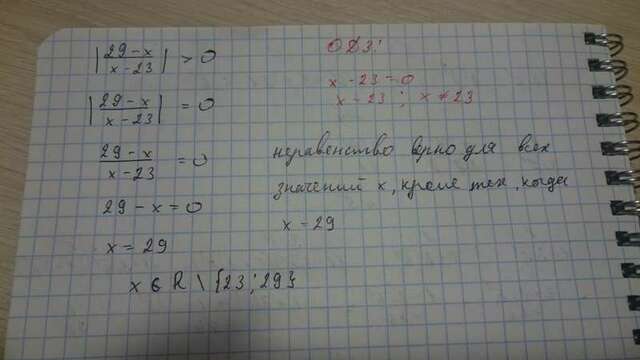 |29 - x / x - 23| > 0
|29 - x / x - 23| = 0
29 - x / x - 23 = 0
29 - x = 0
x = 29
x ∈ R \ {23; 29}
ОДЗ:
x - 23 = 0
x = 23 ; x ≠ 23
неравенство верно для всех
значений x, кроме тех, когда
x = 29